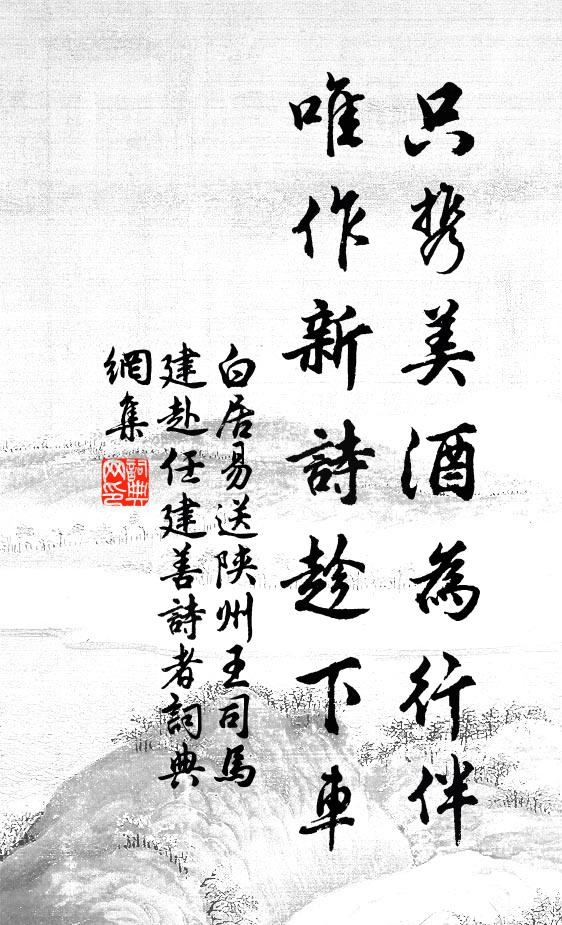 只携美酒為行伴
唯作新詩趁下車
白居易送陝州王司馬
建赴任建善詩者詞典
網集
詞典
网印